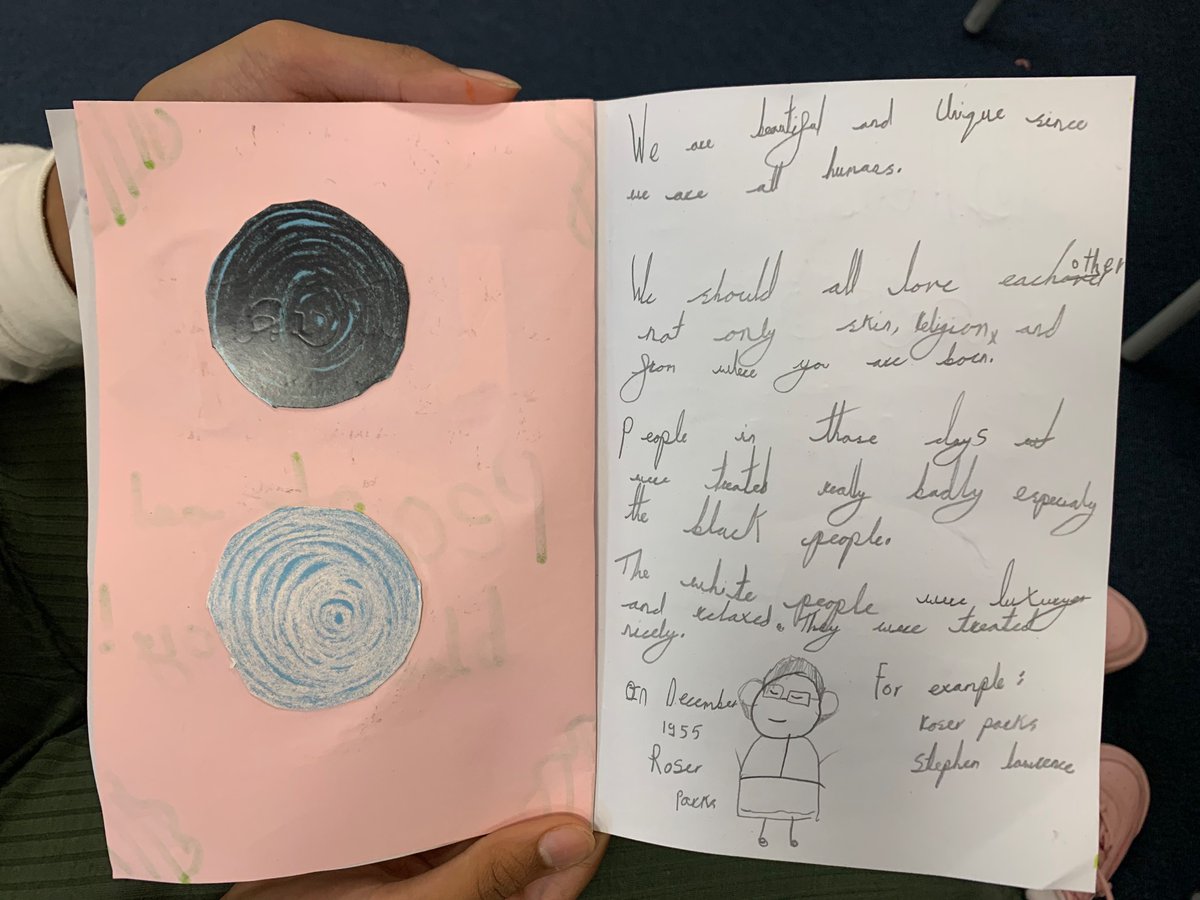 We are beautiful and Unique since
we are all humans.
We should all love each other
not only skin, Religion, and
from where you are born.
People in those days
were treated really badly especialy
the black people.
The white people were luxueyer
and relaxed. They were treated
nicely.
On December
1955
Roser
parks
For example:
Roser parks
Stephen lawrence